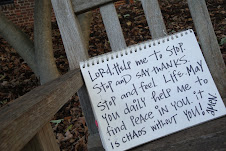 LORD, HELP ME TO STOP.
STOP AND SAY THANKS.
STOP and feel LIFE. MAY
YOU daily fuel me to
find PEACE IN YOU. IT
IS CHAOS WITHOUT YOU!
AMEN